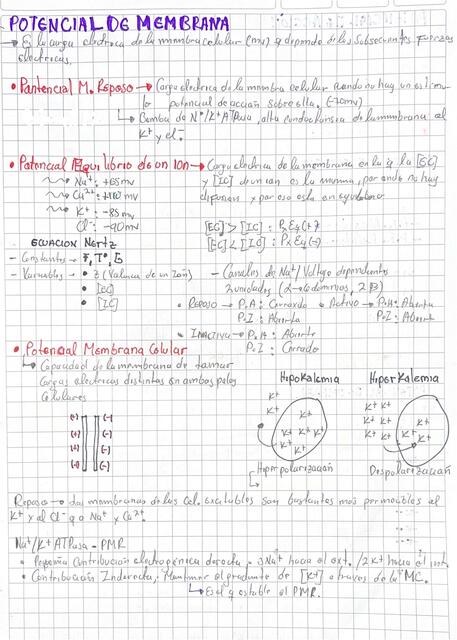 POTENCIAL DE MEMBRANA
→ Es la carga electrica de la membrana celular (mv) y depende de las subsecuentes fuerzas
electricas.
• Pontencial M. Reposo → Carga electrica de la membra celular cuando no hay un estimu-
lo potencial de acción sobre ella. (-70mv)
↳ Bomba de Na⁺/K⁺ATPasa, alta conductancia de la membrana al
K⁺ y el Cl⁻.
• Potencial Equilibrio de un Ion → Carga electrica de la membrana en la q la [EC]
Na⁺: +65mv y [IC] de un ion es la misma, por ende no hay
Ca²⁺: +120mv difusion y por eso esta en equilibrio
K⁺: -85mv
Cl⁻: -90mv [EC] > [IC] : Px Eq (+)
[EC] < [IC] : Px Eq (-)
ECUACION Nertz
- Constantes → F, T°, R
- Variables → • z (Valencia de un Ion) - Canales de Na⁺/Voltage dependientes
• [EC] 2 unidades (2→ dominios, 2β)
• [IC] • Reposo → P.A: Cerrado • Activo → P.A: Abierta
P.I: Abierta P.I: Abierta
• Inactivo → P.A: Abierta
P.I: Cerrado
• Potencial Membrana Celular
↳ Capacidad de la membrana de tomar
Cargas electricas distintas en ambos polos
Celulares
Hipokalemia Hiperkalemia
(+) (-)
(+) (-)
(+) (-)
(+) (-)
K⁺ K⁺ K⁺ K⁺ K⁺ K⁺
Hiperpolarización Despolarización
Reposo → las membranas de las Cel. excitables son bastantes más permeables al
K⁺ y al Cl⁻ q a Na⁺ y Ca²⁺.
Na⁺/K⁺ATPasa - PMR
• Pequeña Contribución electrogénica directa → 3Na⁺ hacia el ext. / 2K⁺ hacia el int.
• Contribución Inderecta; Mantener el gradiente de [K⁺] a traves de la MC.
↳ Es el q estable el PMR.